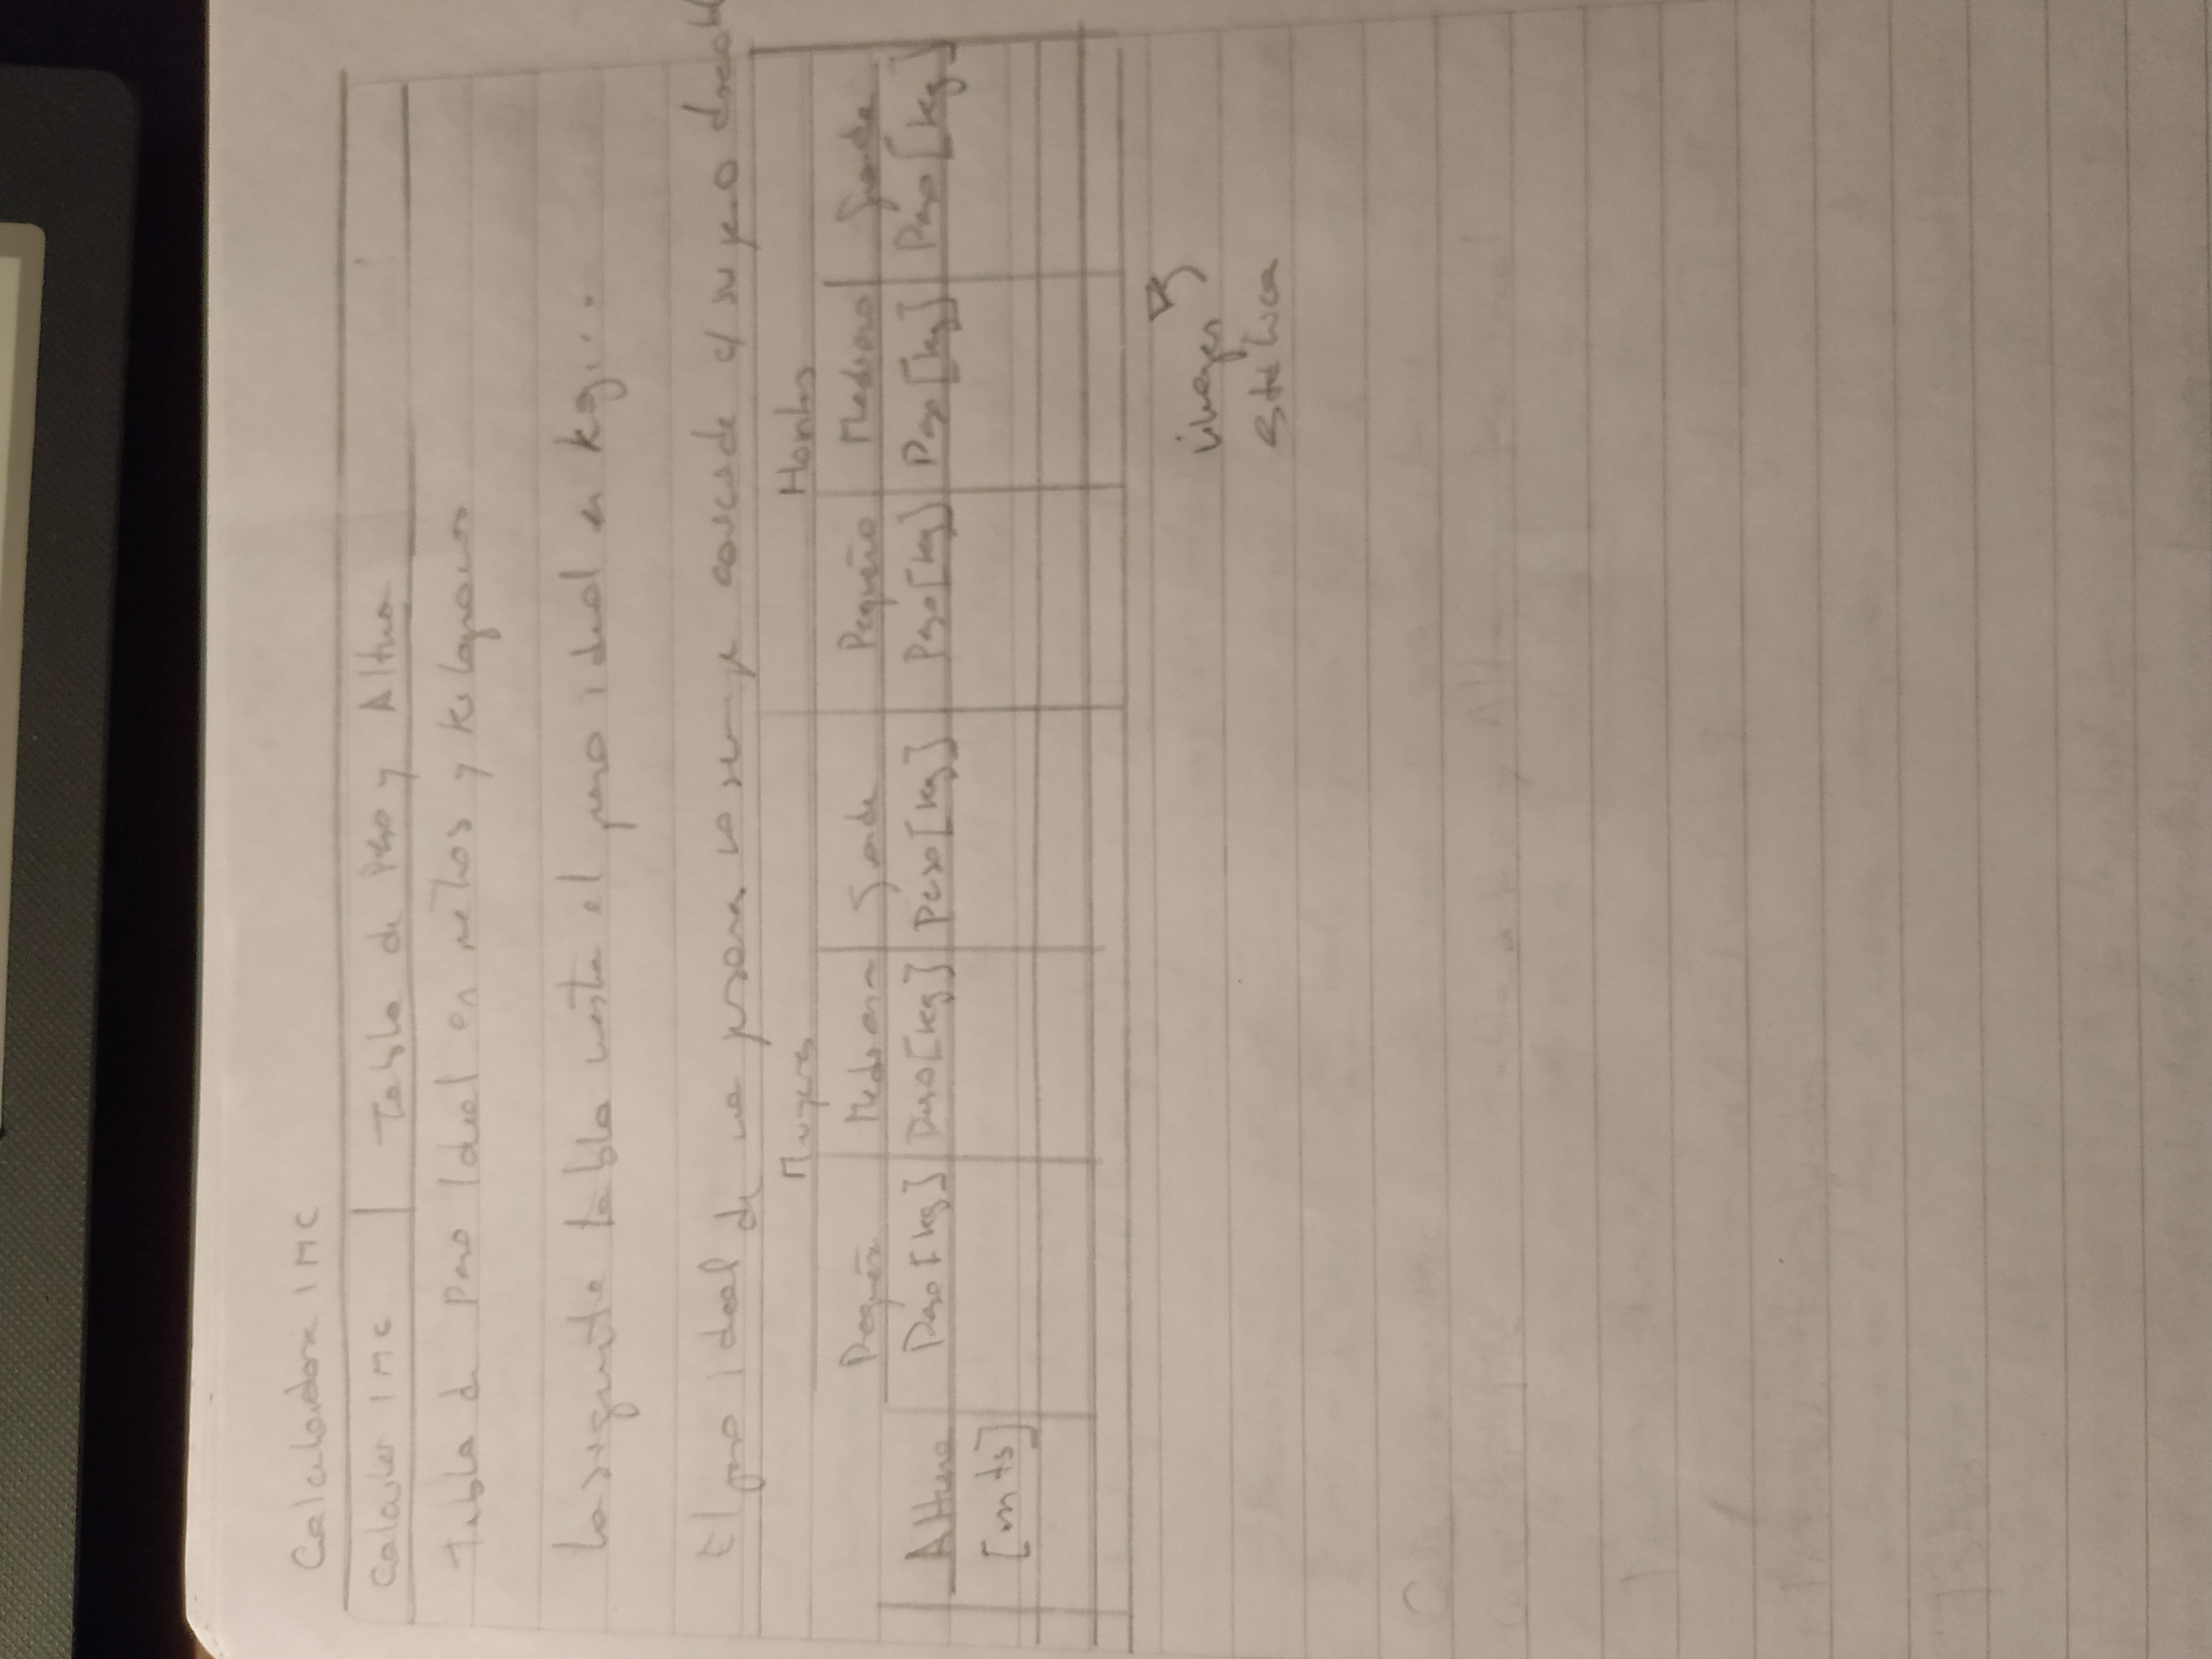 Calculadora IMC
Calcular IMC | Tabla de Peso y Altura
Tabla de Peso Ideal en metros y kilogramos
La siguiente tabla muestra el peso ideal en kg...
El peso ideal de una persona no siempre coincide c/ su peso deseable
Mujeres Hombres
Pequeña Mediana Grande Pequeño Mediano Grande
Altura Peso [kg] Peso [kg] Peso [kg] Peso [kg] Peso [kg] Peso [kg]
[mts]
imagen
estática